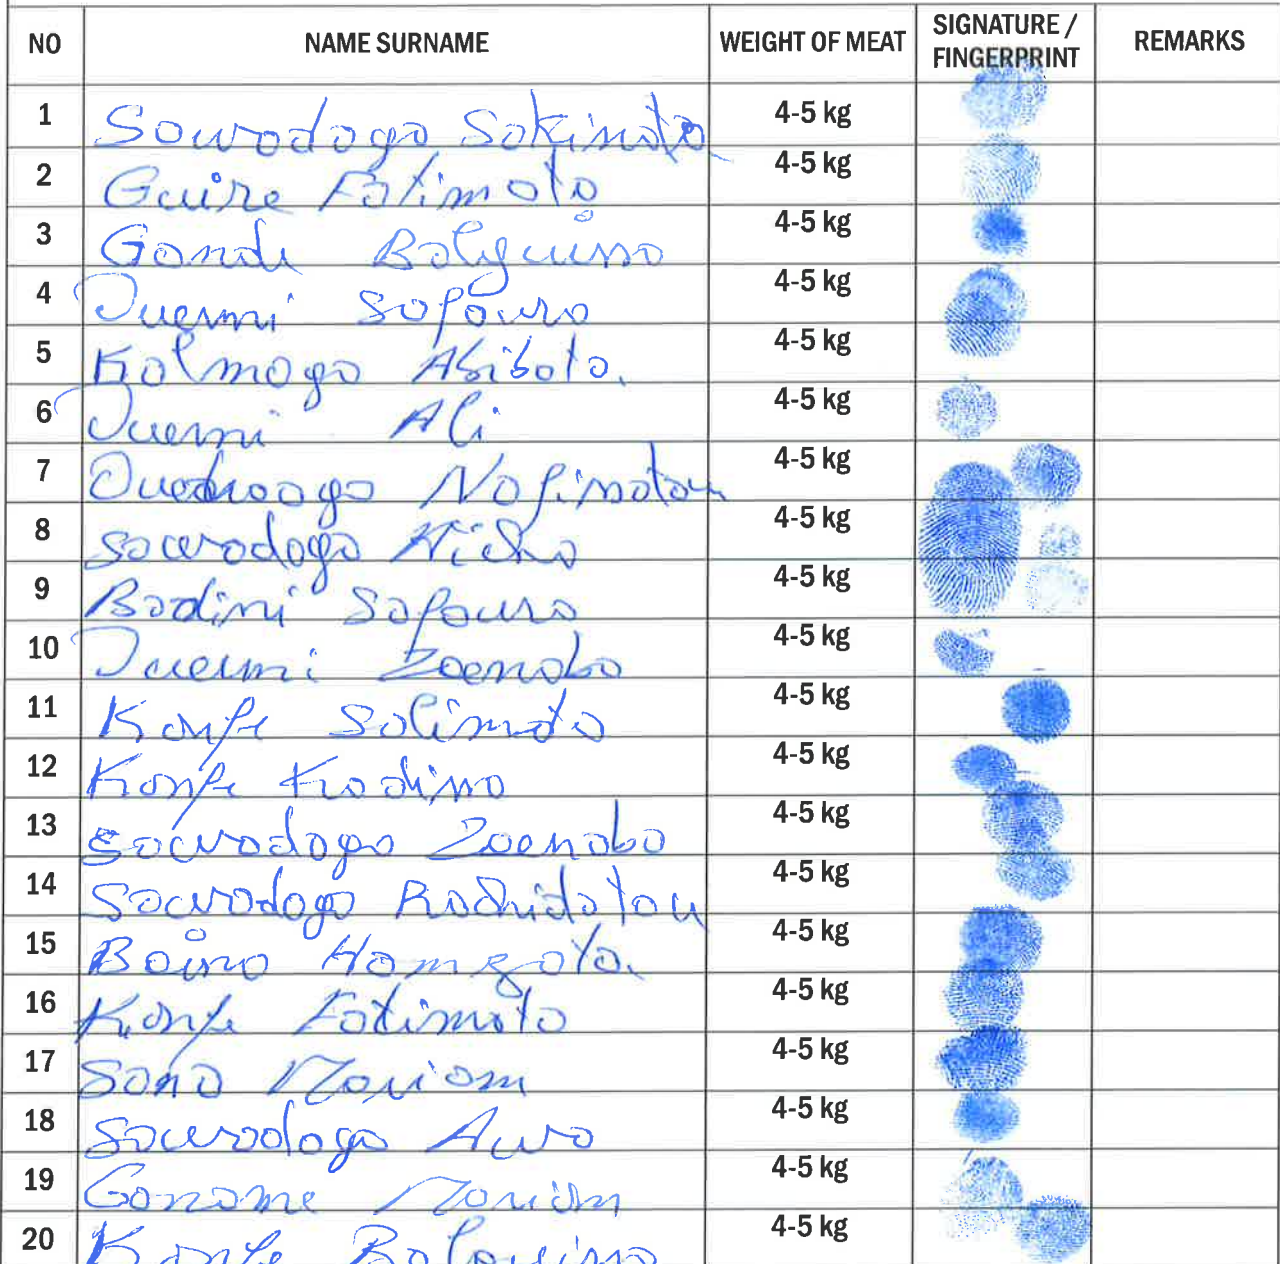 NO NAME SURNAME WEIGHT OF MEAT SIGNATURE / FINGERPRINT REMARKS
1 Sawadogo Sakinata 4-5 kg
2 Guire Fatimata 4-5 kg
3 Gande Balguissa 4-5 kg
4 Ouermi Safoura 4-5 kg
5 Kalmogo Abibata. 4-5 kg
6 Ouermi Ali 4-5 kg
7 Ouedraogo Nafissatou 4-5 kg
8 Sawadogo 4-5 kg
9 Badini Safoura 4-5 kg
10 Ouermi Zoenabo 4-5 kg
11 Konfe Salimata 4-5 kg
12 Konfe Kadissa 4-5 kg
13 Sawadogo Zoenabo 4-5 kg
14 Sawadogo Rachidatou 4-5 kg
15 4-5 kg
16 Konfe Fatimata 4-5 kg
17 Sana Mariam 4-5 kg
18 Sawadogo Awa 4-5 kg
19 Ganame Mariam 4-5 kg
20 Konfe 4-5 kg